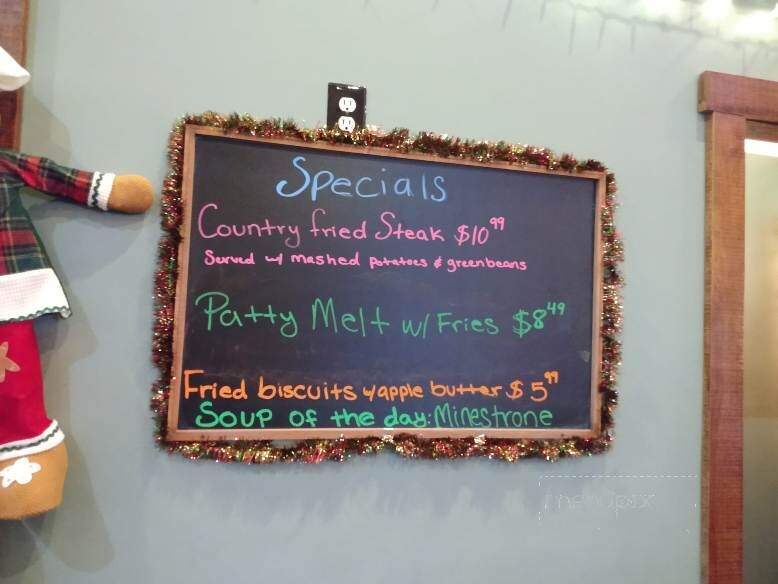 Specials
Country fried Steak $10.99
Served w/ mashed potatoes & greenbeans
Patty Melt w/ Fries $8.49
Fried biscuits w/apple butter $5.99
Soup of the day: Minestrone
menupix